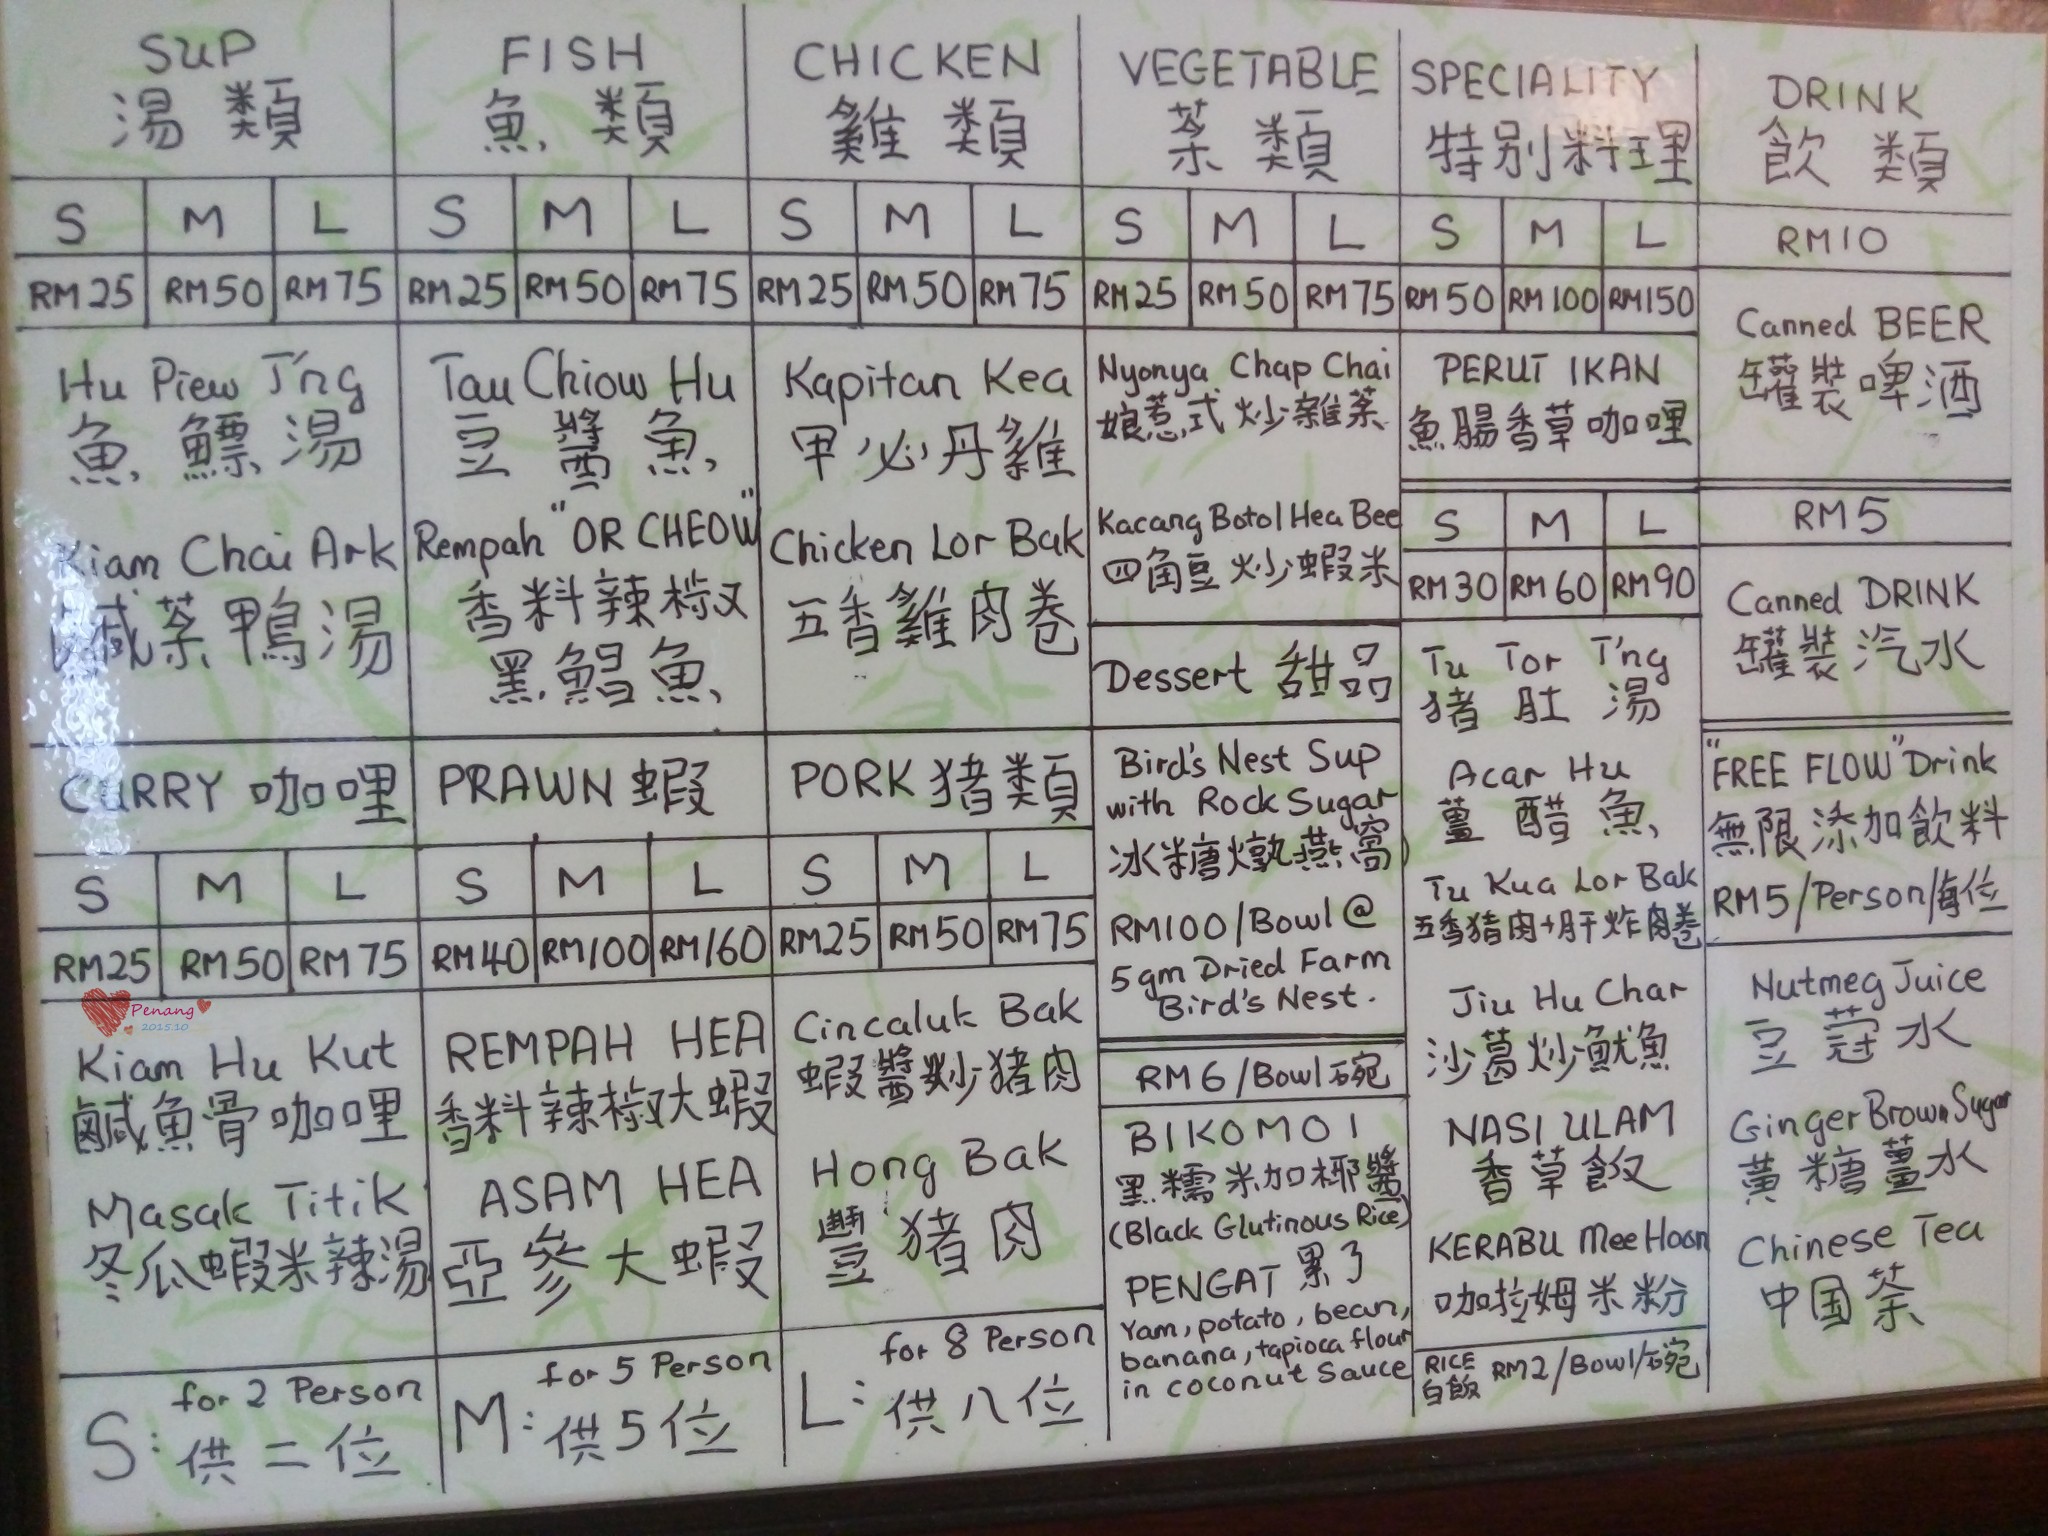 SUP
湯類
S M L
RM25 RM50 RM75
Hu Piew T'ng
魚鰾湯
Kiam Chai Ark
鹹菜鴨湯
CURRY 咖哩
S M L
RM25 RM50 RM75
Penang
2015.10
Kiam Hu Kut
鹹魚骨咖哩
Masak Titik
冬瓜蝦米辣湯
S: for 2 Person
供二位
FISH
魚類
S M L
RM25 RM50 RM75
Tau Chiow Hu
豆醬魚
Rempah "OR CHEOW"
香料辣椒
黑鯧魚
PRAWN 蝦
S M L
RM40 RM100 RM160
REMPAH HEA
香料辣椒大蝦
ASAM HEA
亞參大蝦
M: for 5 Person
供5位
CHICKEN
雞類
S M L
RM25 RM50 RM75
Kapitan Kea
甲必丹雞
Chicken Lor Bak
五香雞肉卷
PORK 猪類
S M L
RM25 RM50 RM75
Cincaluk Bak
蝦醬炒猪肉
Hong Bak
豐猪肉
L: for 8 Person
供八位
VEGETABLE
菜類
S M L
RM25 RM50 RM75
Nyonya Chap Chai
娘惹式炒雜菜
Kacang Botol Hea Bee
四角豆炒蝦米
Dessert 甜品
Bird's Nest Sup
with Rock Sugar
冰糖燉燕窩
RM100/Bowl @
5gm Dried Farm
Bird's Nest.
RM6/Bowl碗
BIKOMOI
黑糯米加椰醬
(Black Glutinous Rice)
PENGAT 累了
Yam, potato, bean,
banana, tapioca flour
in coconut Sauce
SPECIALITY
特别料理
S M L
RM50 RM100 RM150
PERUT IKAN
魚腸香草咖哩
S M L
RM30 RM60 RM90
Tu Tor T'ng
猪肚湯
Acar Hu
薑醋魚
Tu Kua Lor Bak
五香猪肉+肝炸肉卷
Jiu Hu Char
沙葛炒魷魚
NASI ULAM
香草飯
KERABU Mee Hoon
咖拉姆米粉
RICE
白飯 RM2/Bowl/碗
DRINK
飲類
RM10
Canned BEER
罐裝啤酒
RM5
Canned DRINK
罐裝汽水
"FREE FLOW" Drink
無限添加飲料
RM5/Person/每位
Nutmeg Juice
豆蔻水
Ginger Brown Sugar
黃糖薑水
Chinese Tea
中国茶